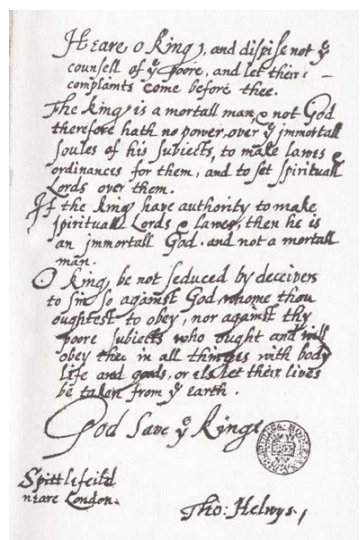 Heare o king, and dispise not yͤ
counsell of yͤ poore, and let their
complaints come before thee.
The king is a mortall man, & not God
therefore hath no power over yͤ immortall
soules of his subiects, to make lawes &
ordinances for them, and to set spirituall
Lords over them.
If the king have authority to make
spirituall Lords & lawes, then he is
an immortall God, and not a mortall
man.
O king, be not seduced by deceivers
to sin so against God whome thou
oughtest to obey, nor against thy
poore subiects who ought and will
obey thee in all thinges with body
life and goods, or els let their lives
be taken from yͤ earth.
God save yͤ king
Spittlefeild
neare London.
Tho: Helwys,